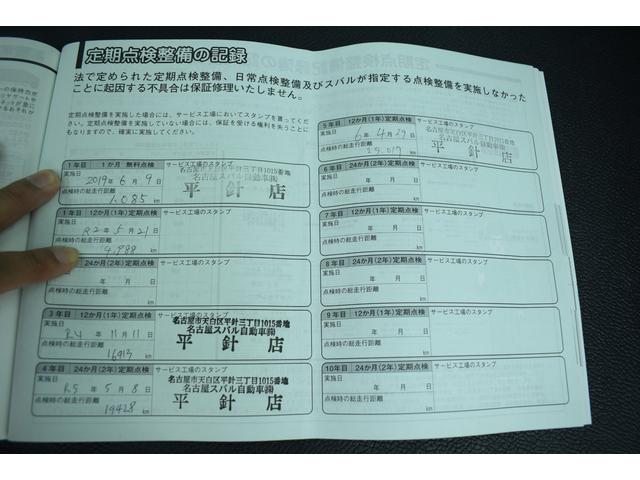 定期点検整備の記録
法で定められた定期点検整備、日常点検整備及びスバルが指定する点検整備を実施しなかった
ことに起因する不具合は保証修理いたしません。
定期点検整備を実施した場合には、サービス工場においてスタンプを貰ってくだ
さい。定期点検整備を実施していない場合には、保証を受ける権利を失うことに
もなりますので、確実に実施してください。
1年目 1か月 無料点検 サービス工場のスタンプ
実施日
2019年 6月 9日
点検時の総走行距離
1,085 km
名古屋市天白区平針三丁目1015番地
名古屋スバル自動車㈱
平針店
1年目 12か月(1年)定期点検 サービス工場のスタンプ
実施日
R2年 5月 21日
点検時の総走行距離
4,988
24か月(2年)定期点検 サービス工場のスタンプ
年 月 日
点検時の総走行距離
km
3年目 12か月(1年)定期点検
実施日
R4年 11月 11日
点検時の総走行距離
16913 km
名古屋市天白区平針三丁目1015番地
名古屋スバル自動車㈱
平針店
4年目 24か月(2年)定期点検 サービス工場のスタンプ
実施日
R5年 5月 8日
点検時の総走行距離
19428 km
名古屋市天白区平針三丁目1015番地
名古屋スバル自動車㈱
平針店
5年目 12か月(1年)定期点検 サービス工場のスタンプ
実施日
6年 4月 29日
点検時の総走行距離
25,017 km
名古屋市天白区平針三丁目1015番地
名古屋スバル自動車㈱
平針店
6年目 24か月(2年)定期点検 サービス工場のスタンプ
実施日
年 月 日
点検時の総走行距離
km
7年目 12か月(1年)定期点検 サービス工場のスタンプ
実施日
年 月 日
点検時の総走行距離
km
8年目 24か月(2年)定期点検 サービス工場のスタンプ
実施日
年 月 日
点検時の総走行距離
km
9年目 12か月(1年)定期点検 サービス工場のスタンプ
実施日
年 月 日
点検時の総走行距離
km
10年目 24か月(2年)定期点検 サービス工場のスタンプ
実施日
年 月 日
点検時の総走行距離
km